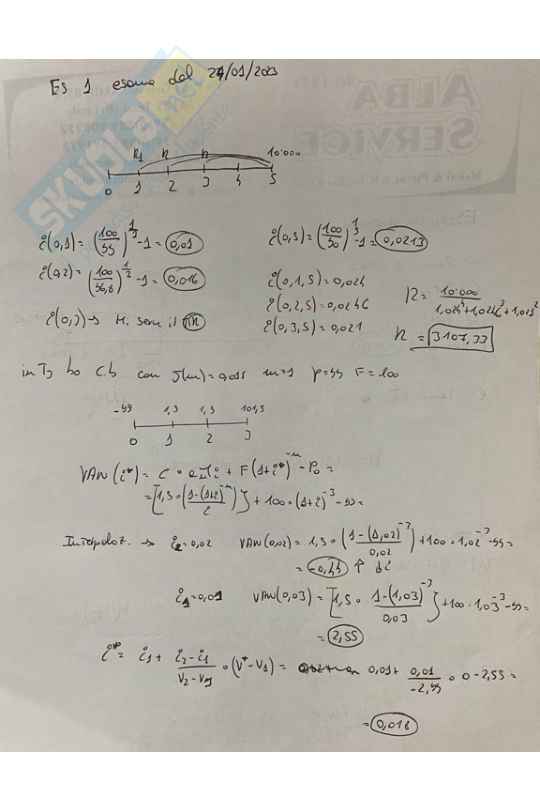 Es 1 esame del 24/01/2023
R1 R R 10.000
0 1 2 3 4 5
i(0,1) = (100/99)^1/1 - 1 = 0,01
i(0,5) = (100/90)^1/5 - 1 = 0,0213
i(0,2) = (100/96,8)^1/2 - 1 = 0,016
i(0,1,5) = 0,024
i(0,2,5) = 0,0246
R = 10.000
i(0,3) → H. serve il TIR
i(0,3,5) = 0,021
R = 3107,33
in T3 ho C.b con J(m) = 0,015 m=1 p=99 F=100
-99 1,5 1,5 101,5
0 1 2 3
VAN(i*) = C · a n⌐i + F(1+i*)^-n - P0 =
= [1,5 · (1-(1+i)^-n / i)] + 100 · (1+i)^-3 - 99 =
Interpolaz. → i2=0,02 VAN(0,02) = 1,5 · (1-(1,02)^-3 / 0,02) + 100 · 1,02^-3 - 99 =
= -0,44 ↑
i1=0,01 VAN(0,03) = [1,5 · 1-(1,03)^-3 / 0,03] + 100 · 1,03^-3 - 99 =
= 2,55
i* = i1 + i2-i1 / V2-V1 · (V*-V1) = 0,01 + 0,01 / -2,99 · 0 - 2,55 =
= 0,018